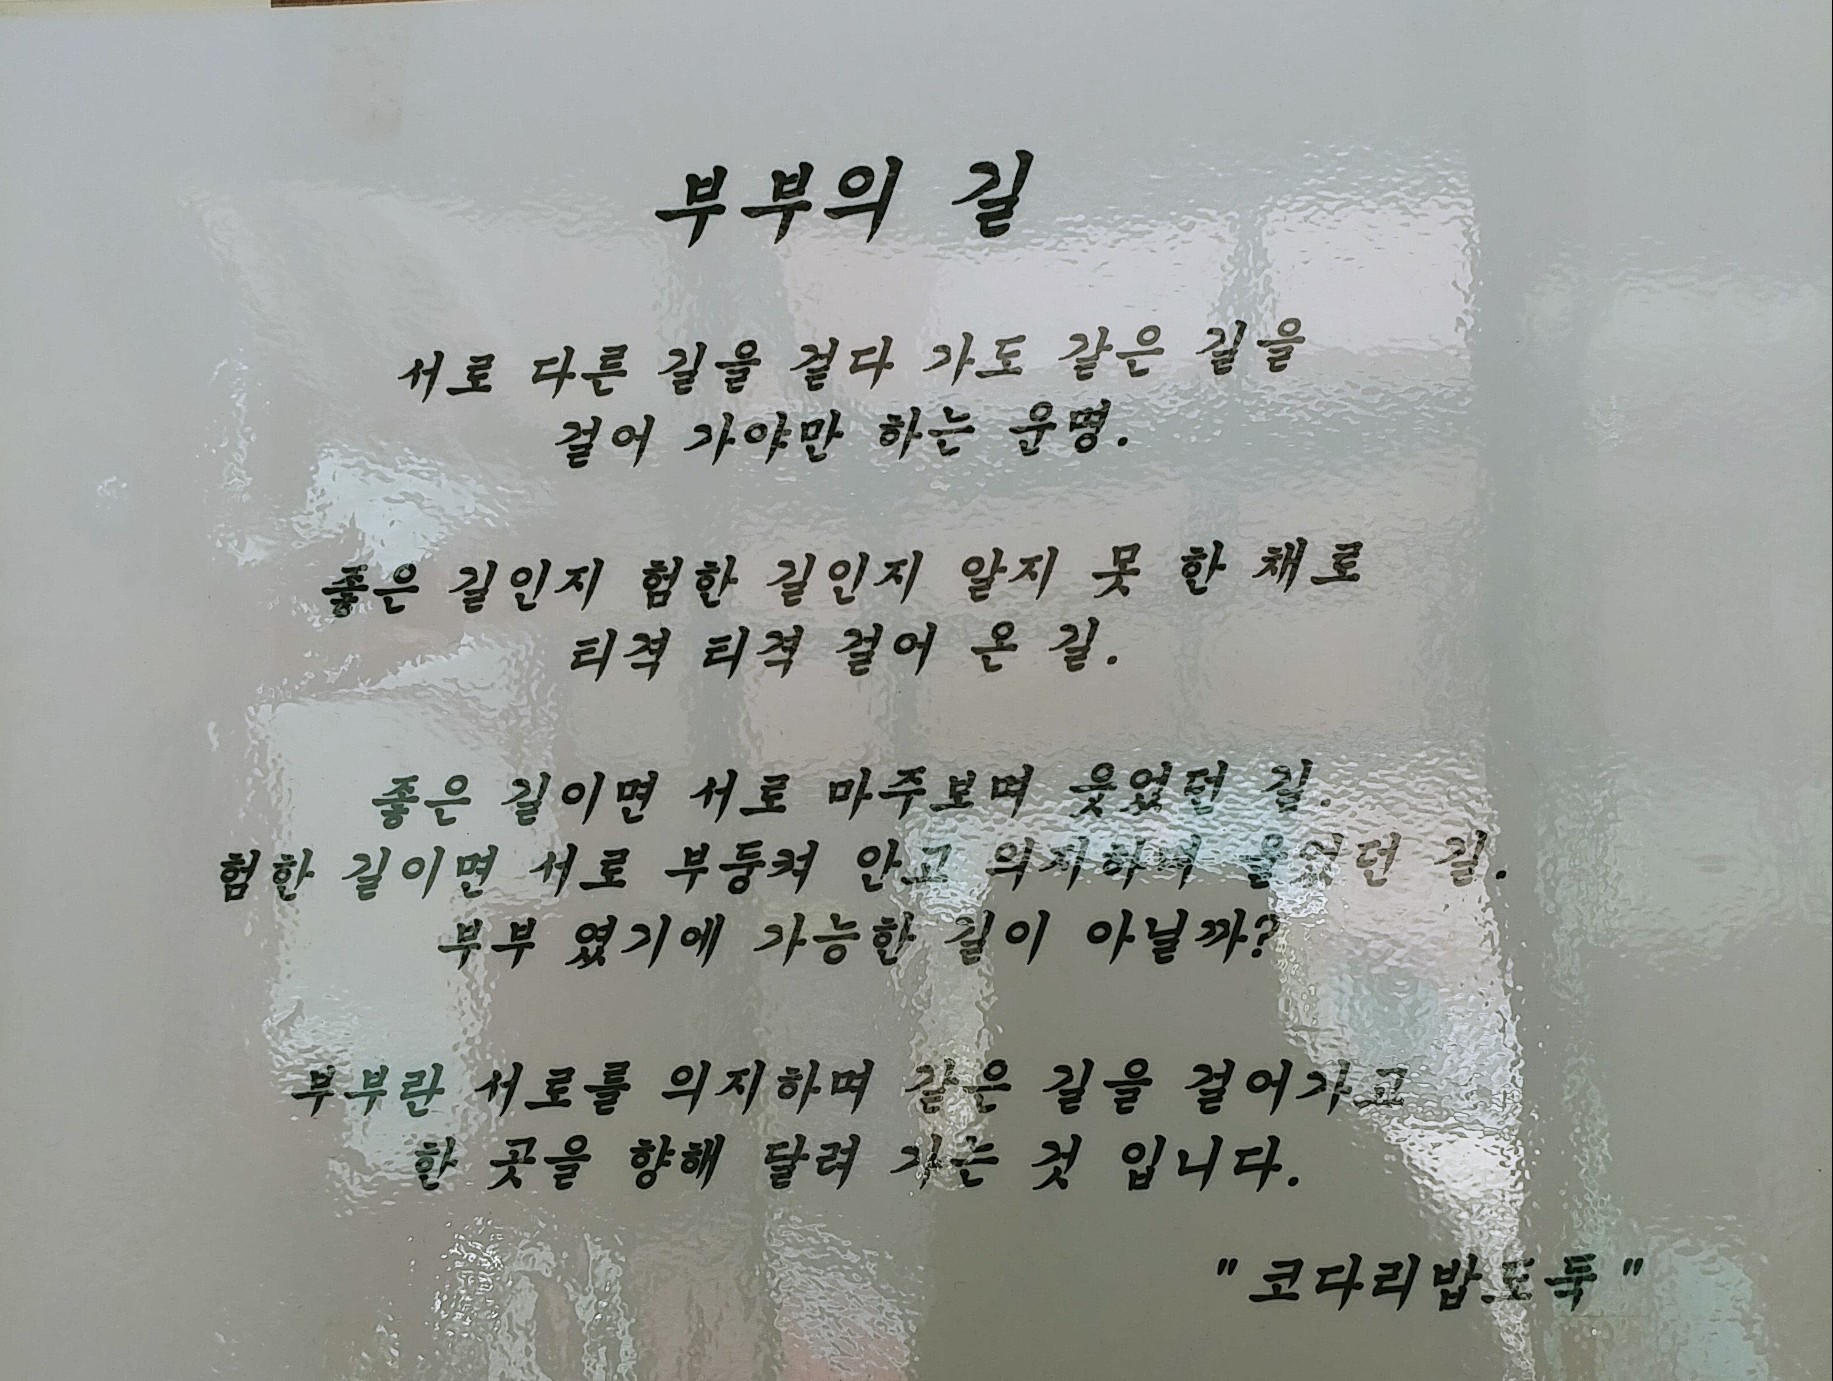 부부의 길
서로 다른 길을 걷다 가도 같은 길을
걸어 가야만 하는 운명.
좋은 길인지 험한 길인지 알지 못 한 채로
티격 티격 걸어 온 길.
좋은 길이면 서로 마주보며 웃었던 길.
험한 길이면 서로 부둥켜 안고 의지하며 울었던 길.
부부 였기에 가능한 길이 아닐까?
부부란 서로를 의지하며 같은 길을 걸어가고
한 곳을 향해 달려 가는 것 입니다.
" 코다리밥도둑 "